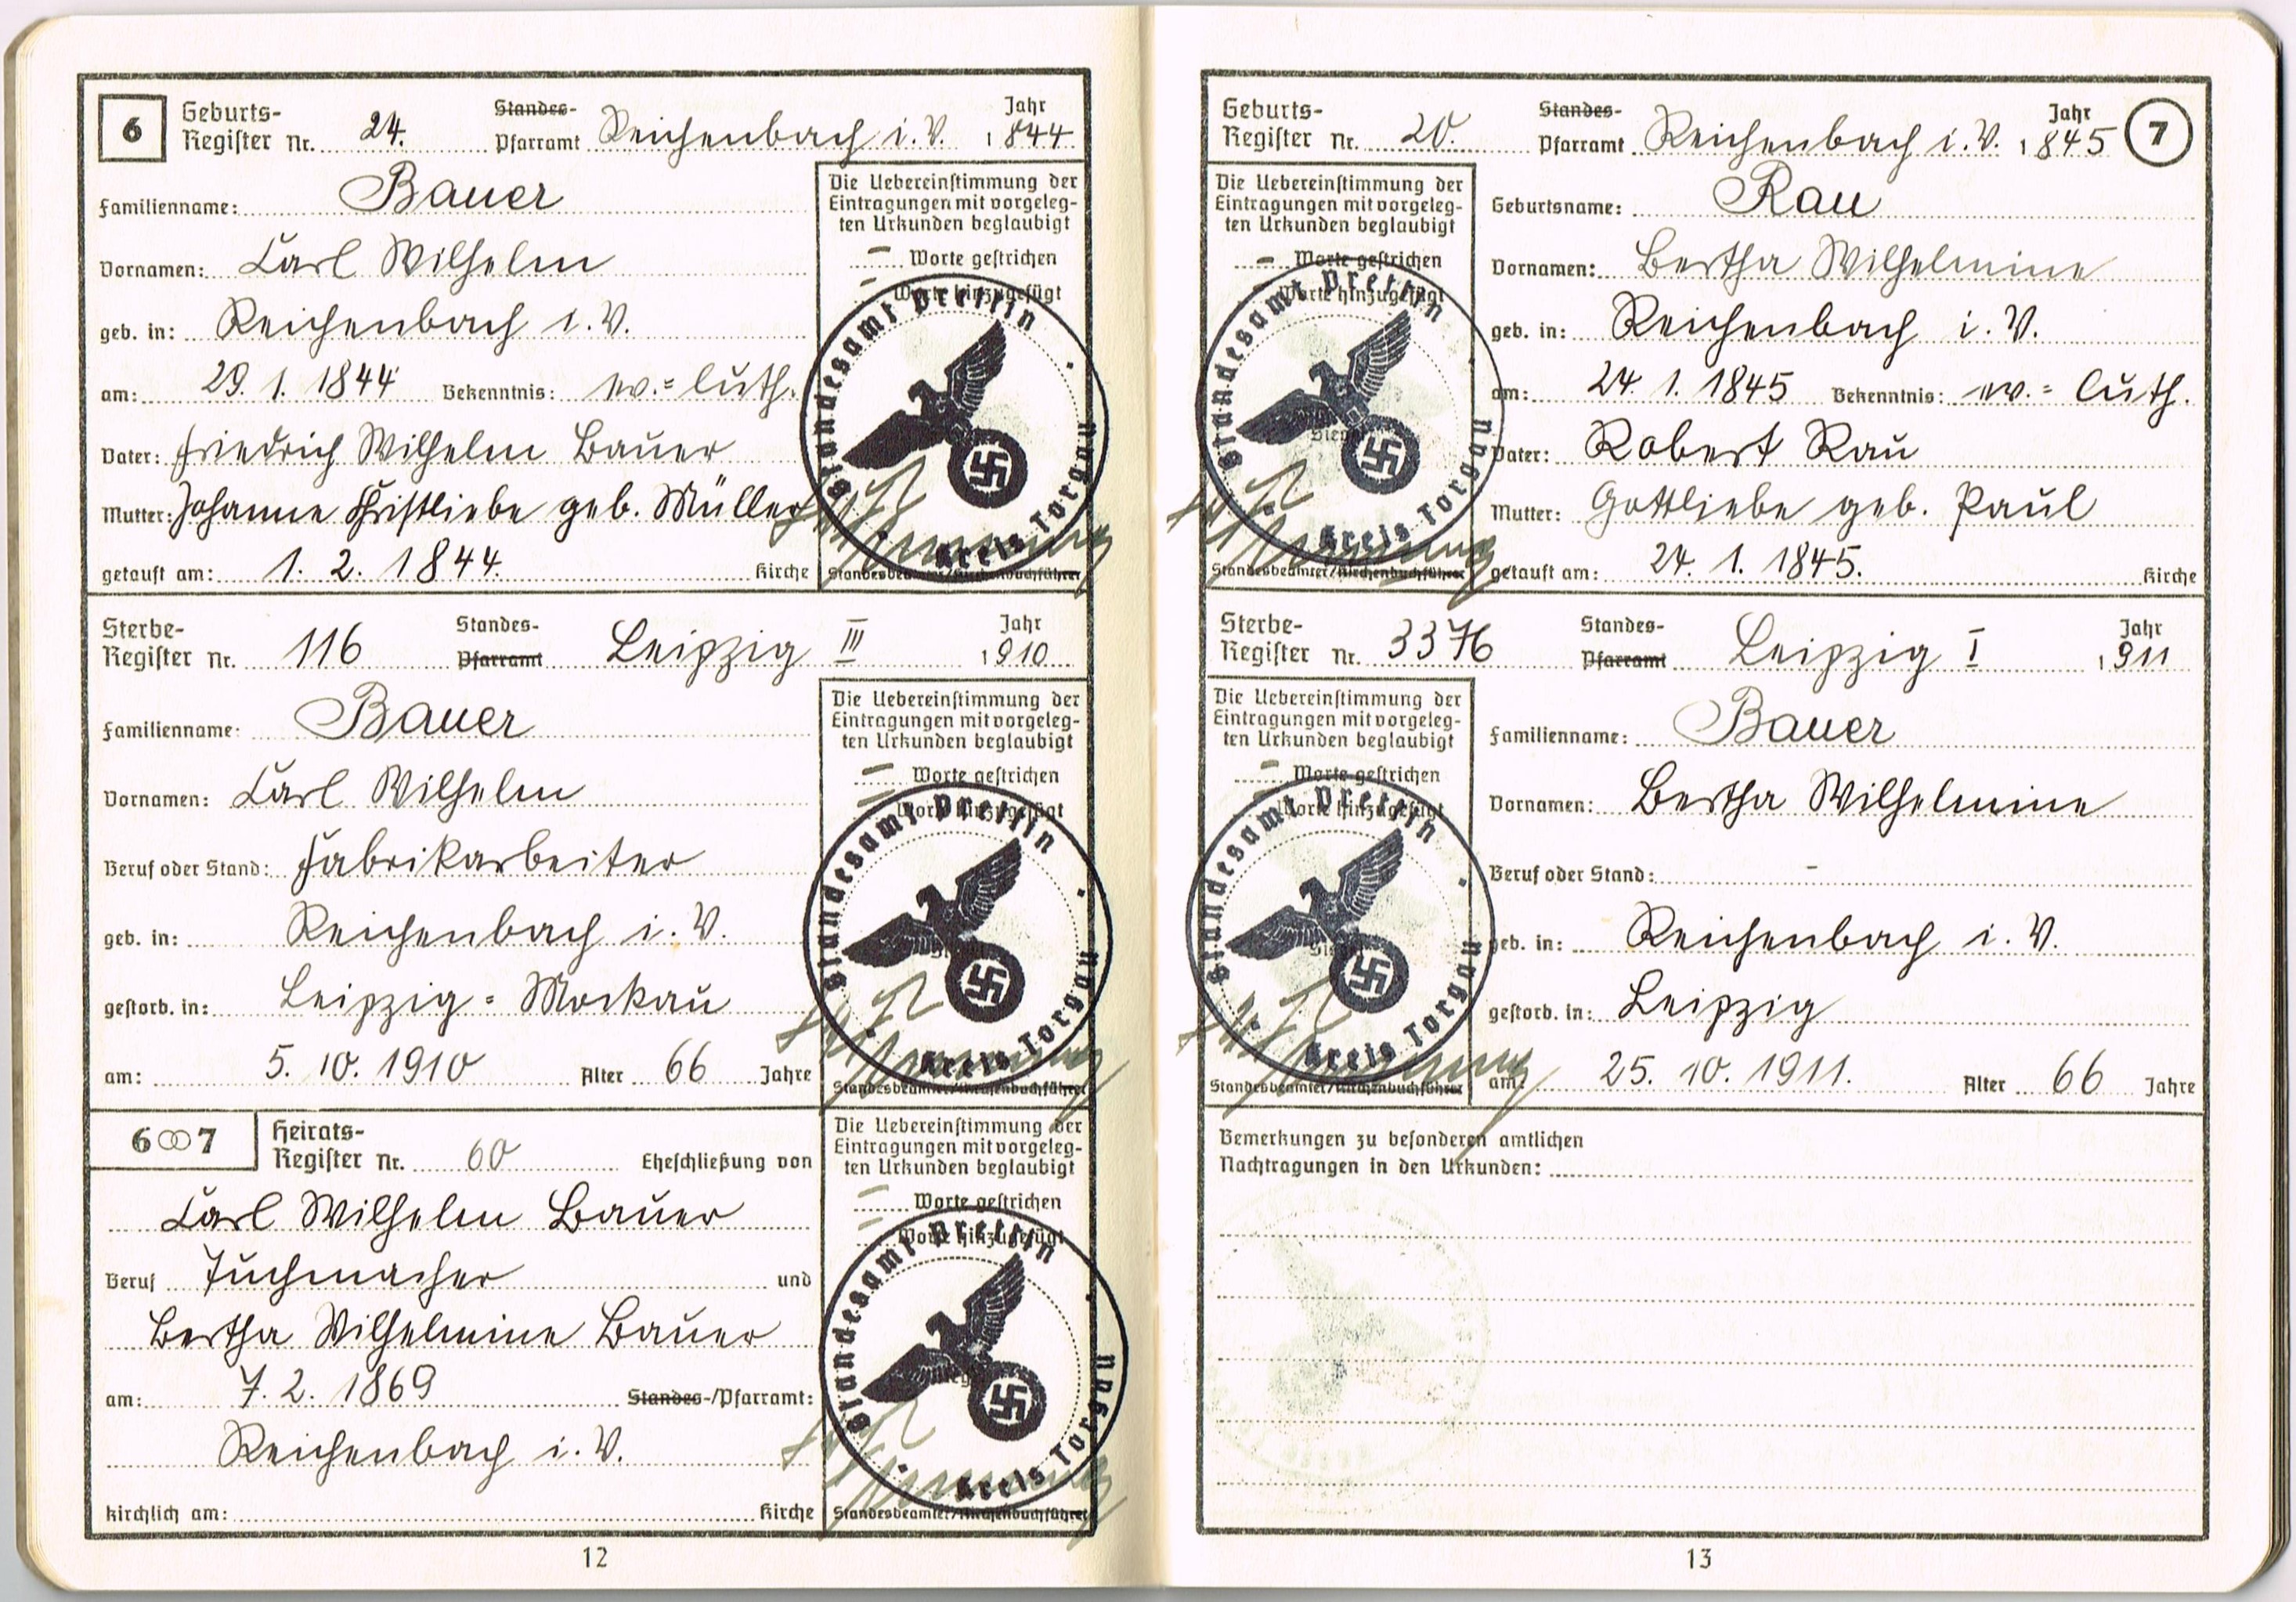 6
Geburts-
Register Nr. 24. Standes- Pfarramt Reichenbach i. V. Jahr 1844
Familienname: Bauer
Vornamen: Carl Wilhelm
geb. in: Reichenbach i. V.
am: 29. 1. 1844 Bekenntnis: ev.=luth.
Vater: Friedrich Wilhelm Bauer
Mutter: Johanne Christliebe geb. Müller
getauft am: 1. 2. 1844. Kirche
Die Uebereinstimmung der
Eintragungen mit vorgeleg-
ten Urkunden beglaubigt
– Worte gestrichen
– Worte hinzugefügt
Standesamt Prettin
Kreis Torgau
Standesbeamter/Kirchenbuchführer
Sterbe-
Register Nr. 116 Standes- Pfarramt Leipzig III Jahr 1910
Familienname: Bauer
Vornamen: Carl Wilhelm
Beruf oder Stand: Fabrikarbeiter
geb. in: Reichenbach i. V.
gestorb. in: Leipzig=Mockau
am: 5. 10. 1910 Alter 66 Jahre
Die Uebereinstimmung der
Eintragungen mit vorgeleg-
ten Urkunden beglaubigt
– Worte gestrichen
– Worte hinzugefügt
Standesamt Prettin
Kreis Torgau
Standesbeamter/Kirchenbuchführer
6 ∞ 7
Heirats-
Register Nr. 60 Eheschließung von
Carl Wilhelm Bauer
Beruf Tuchmacher und
Bertha Wilhelmine Bauer
am: 7. 2. 1869 Standes-/Pfarramt:
Reichenbach i. V.
kirchlich am: Kirche
Die Uebereinstimmung der
Eintragungen mit vorgeleg-
ten Urkunden beglaubigt
– Worte gestrichen
– Worte hinzugefügt
Standesamt Prettin
Kreis Torgau
Standesbeamter/Kirchenbuchführer
12
Geburts-
Register Nr. 20. Standes- Pfarramt Reichenbach i. V. Jahr 1845
7
Die Uebereinstimmung der
Eintragungen mit vorgeleg-
ten Urkunden beglaubigt
– Worte gestrichen
– Worte hinzugefügt
Standesamt Prettin
Kreis Torgau
Standesbeamter/Kirchenbuchführer
Geburtsname: Rau
Vornamen: Bertha Wilhelmine
geb. in: Reichenbach i. V.
am: 24. 1. 1845 Bekenntnis: ev.=luth.
Vater: Robert Rau
Mutter: Gottliebe geb. Paul
getauft am: 24. 1. 1845. Kirche
Sterbe-
Register Nr. 3376 Standes- Pfarramt Leipzig I Jahr 1911
Die Uebereinstimmung der
Eintragungen mit vorgeleg-
ten Urkunden beglaubigt
– Worte gestrichen
Worte hinzugefügt
Standesamt Prettin
Kreis Torgau
Standesbeamter/Kirchenbuchführer
Familienname: Bauer
Vornamen: Bertha Wilhelmine
Beruf oder Stand: -
geb. in: Reichenbach i. V.
gestorb. in: Leipzig
am: 25. 10. 1911. Alter 66 Jahre
Bemerkungen zu besonderen amtlichen
Nachtragungen in den Urkunden:
13